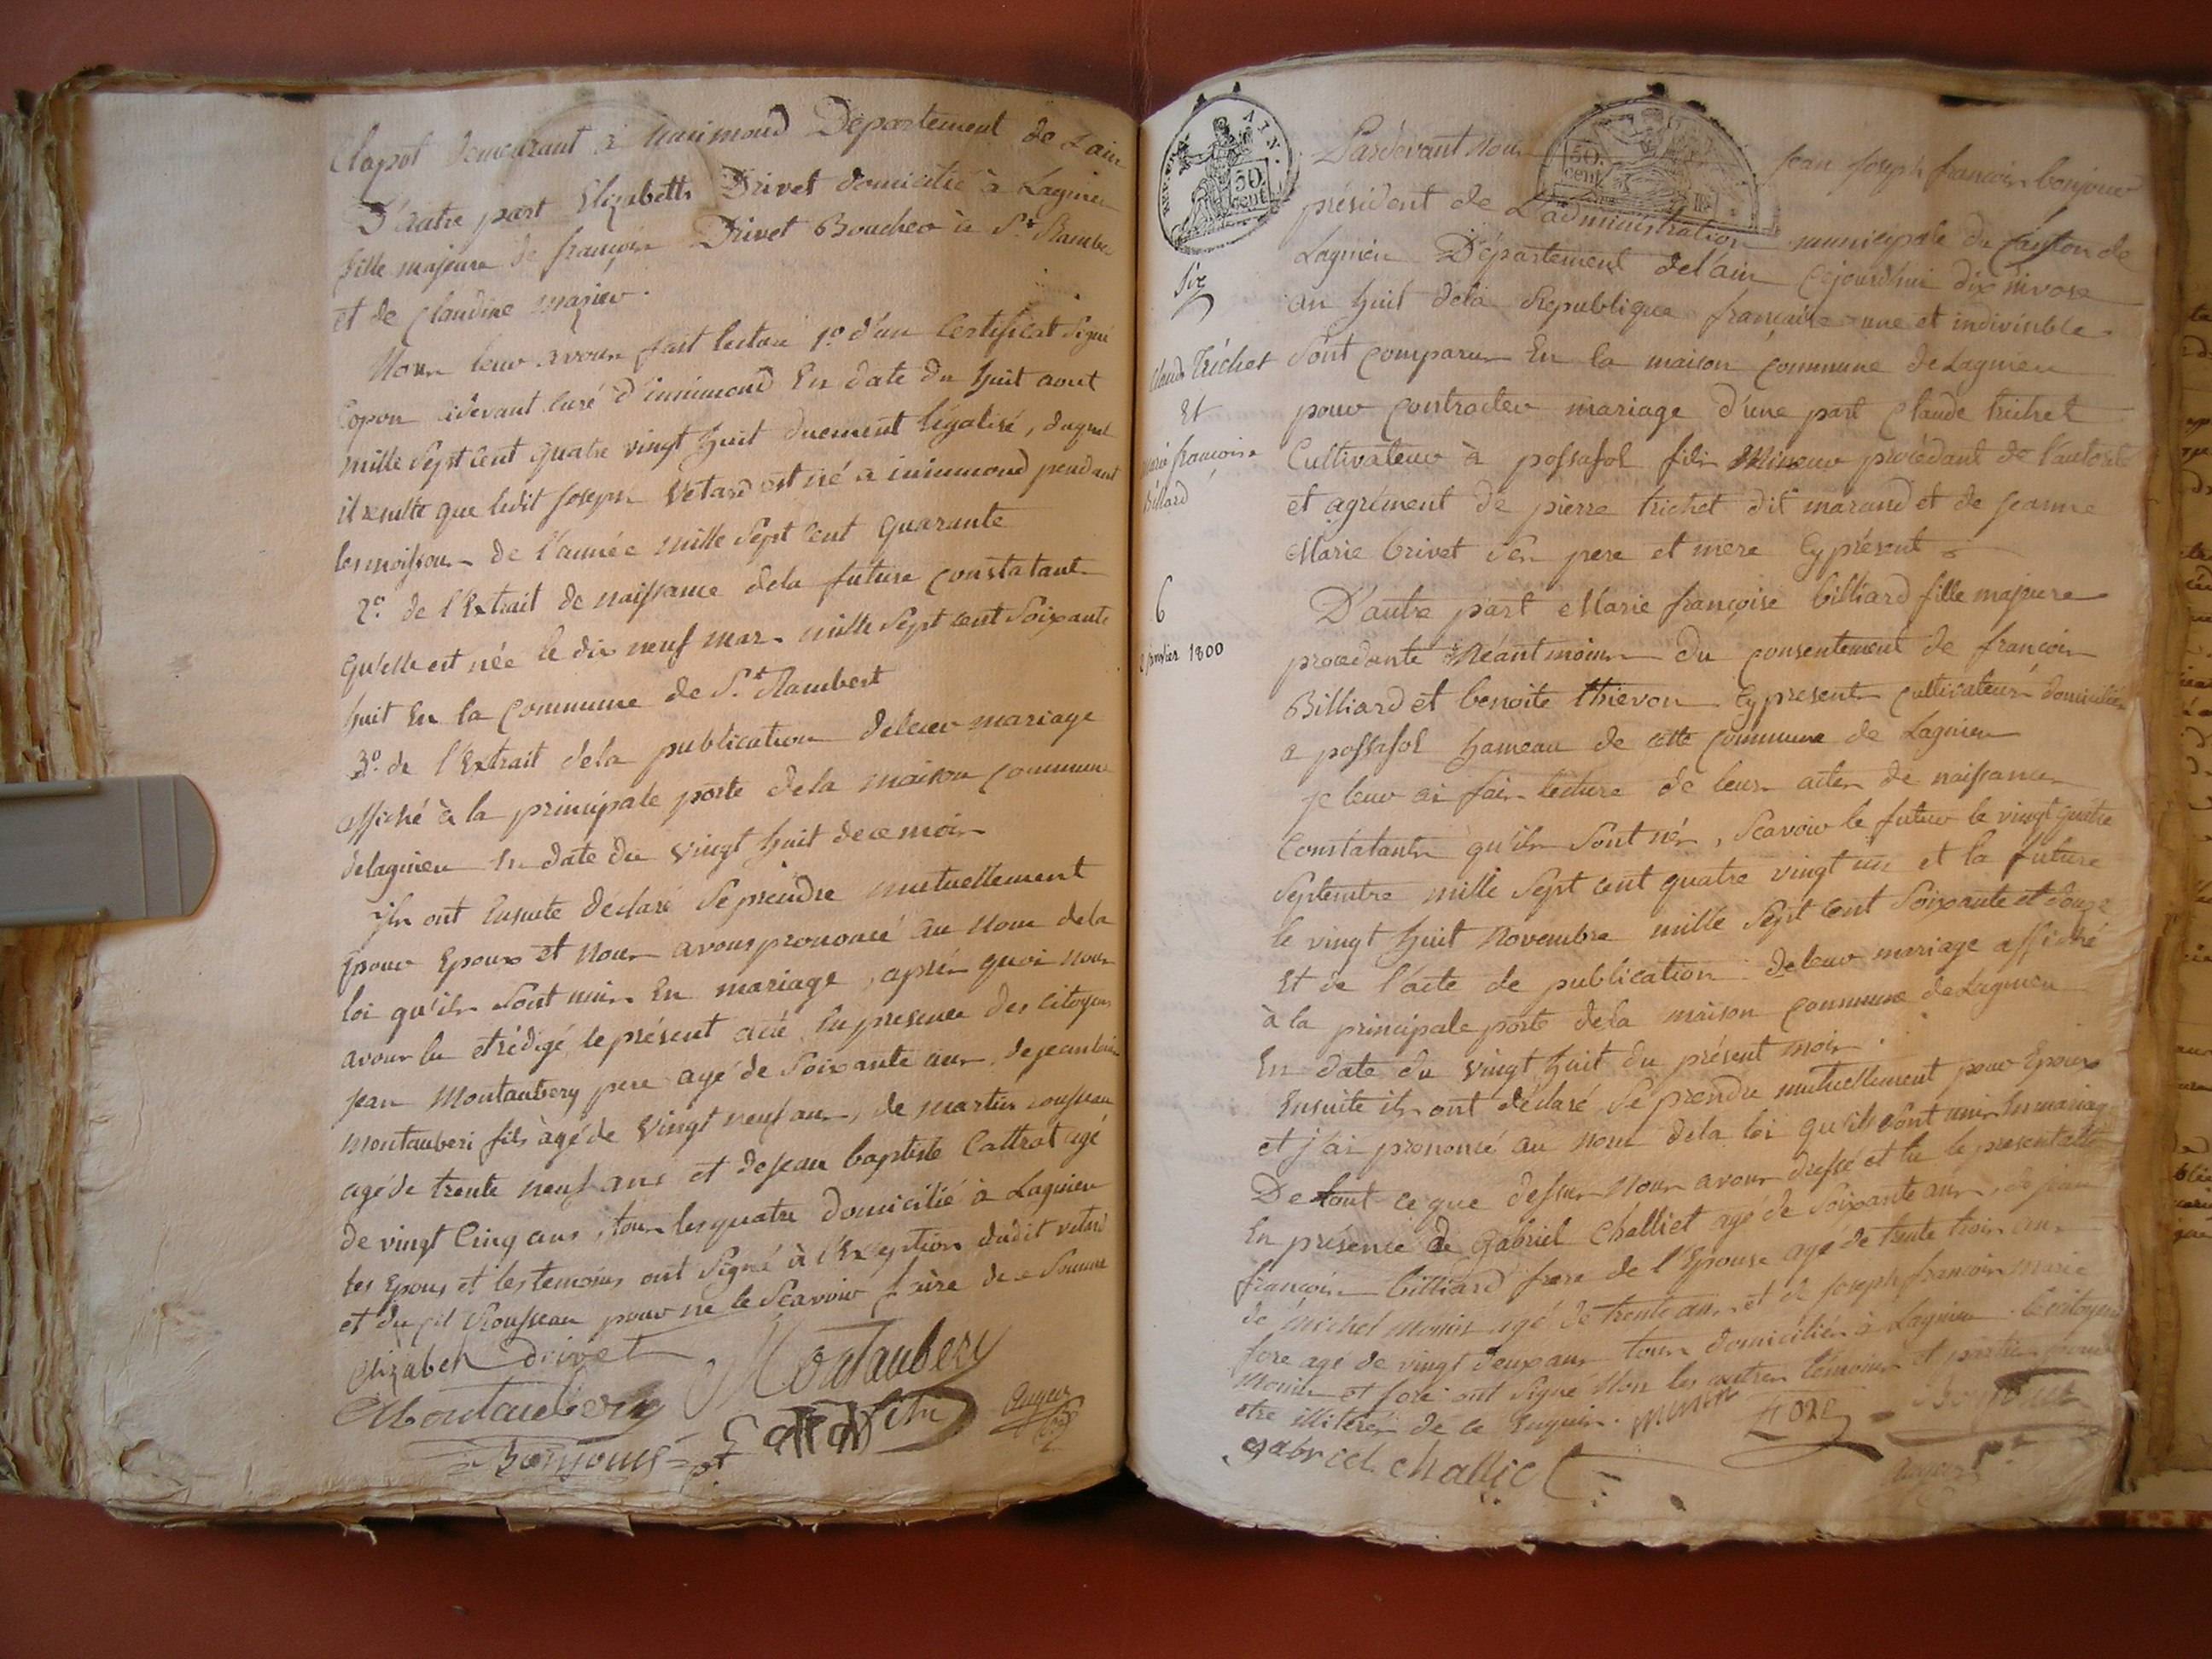 Clapot demeurant à innimond Département de Lain
D'autre part Elizabeth Drivet domicilié à Lagnieu
fille majeure de françois Drivet Boucher à St Rambert
et de Claudine
Nous leur avons fait lecture 1º d'un Certificat Signé
Copon cidevant curé d'innimond En date du huit aout
mille Sept Cent quatre vingt huit duement légalisé, duquel
il resulte que ledit Joseph Vetard est né a innimond pendant
les moissons de l'année mille Sept Cent quarante
2º de l'Extrait de naissance dela future constatant
qu'elle est née le dix neuf mars mille Sept cent Soixante
huit En la Commune de St Rambert
3º de l'Extrait dela publication deleur mariage
affiché à la principale porte dela maison commune
delagnieu En date du vingt huit dece mois
ils ont Ensuite déclaré Se prendre mutuellement
pour Epoux et Nous avons prononcé au Nom dela
loi qu'ils Sont unis En mariage, après quoi nous
avons lu et rédigé le présent acte En presence des citoyens
Jean Montaubery pere agé de Soixante ans, de jean
Montauberi fils âgé de vingt neuf ans, de martin rousseau
agé de trente neuf ans et de Jean baptiste Cattrat agé
de vingt Cinq ans, tous les quatre domicilié à Lagnieu
les Epoux et les temoins ont Signé à l'Exception dudit vetard
et du cit Rousseau pour ne le Scavoir faire de ce Sommé
Elizabet Drivet Montaubery
Montaubery
Bonjour pt
AIN.
50. cent
50. cent
Six
Claude Trichet
Et
Marie françoise
billard
6
janvier 1800
Pardevant Nous Jean Joseph francois bonjour
président de L'administration municipale du Canton de
Lagnieu Département del'ain cejourd'hui dix nivose
an huit dela Republique française une et indivisible
Sont comparus En la maison Commune de Lagnieu
pour contracter mariage d'une part Claude trichet
Cultivateur à possafol fils Mineur procédant de l'autorité
et agrément de pierre trichet dit marand et de jeanne
Marie brivet Ses pere et mere Cy présent
D'autre part Marie françoise billiard fille majeure
procedante Néantmoins du consentement de françois
Billiard et benoite thievon Cy presents cultivateurs domiciliés
a possafol hameau de cette Commune de Lagnieu
je leur ai fais lecture de leurs actes de naissances
Constatants qu'ils Sont nés, Scavoir le futur le vingt quatre
Septembre mille Sept cent quatre vingt un et la future
le vingt huit Novembre mille Sept Cent Soixante et douze
Et de l'acte de publication deleur mariage affiché
à la principale porte dela maison commune de Lagnieu
En date du vingt huit du présent mois.
Ensuite ils ont déclaré Se prendre mutuellement pour Epoux
et j'ai prononcé au nom dela loi qu'ils Sont unis En mariage
De tout ce que dessus Nous avons dressé et lu le present acte
En présence de Gabriel Challiet agé de Soixante ans, de jean
françois billiard frere de l'Epouse agé de trente trois ans
de michel monin agé de trente ans et de joseph françois marie
fore agé de vingt deux ans tous domiciliés à Lagnieu. les citoyens
Monin et fore ont Signé Non les autres témoins et parties pour
etre illiterés de ce Enquis. monin fore Bonjour
gabriel challiet pt